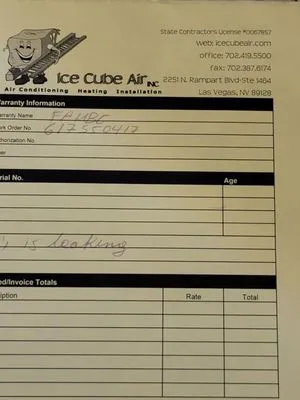 State Contractors License #0067857
web: icecubeair.com
office: 702.419.5500
fax: 702.387.6174
Ice Cube Air INC 2251 N. Rampart Blvd-Ste 1464
Air Conditioning Heating Installation Las Vegas, NV 89128
arranty Information
arranty Name
ork Order No. 617550417
thorization No.
rial No. Age
is leaking
ed/Invoice Totals
iption Rate Total